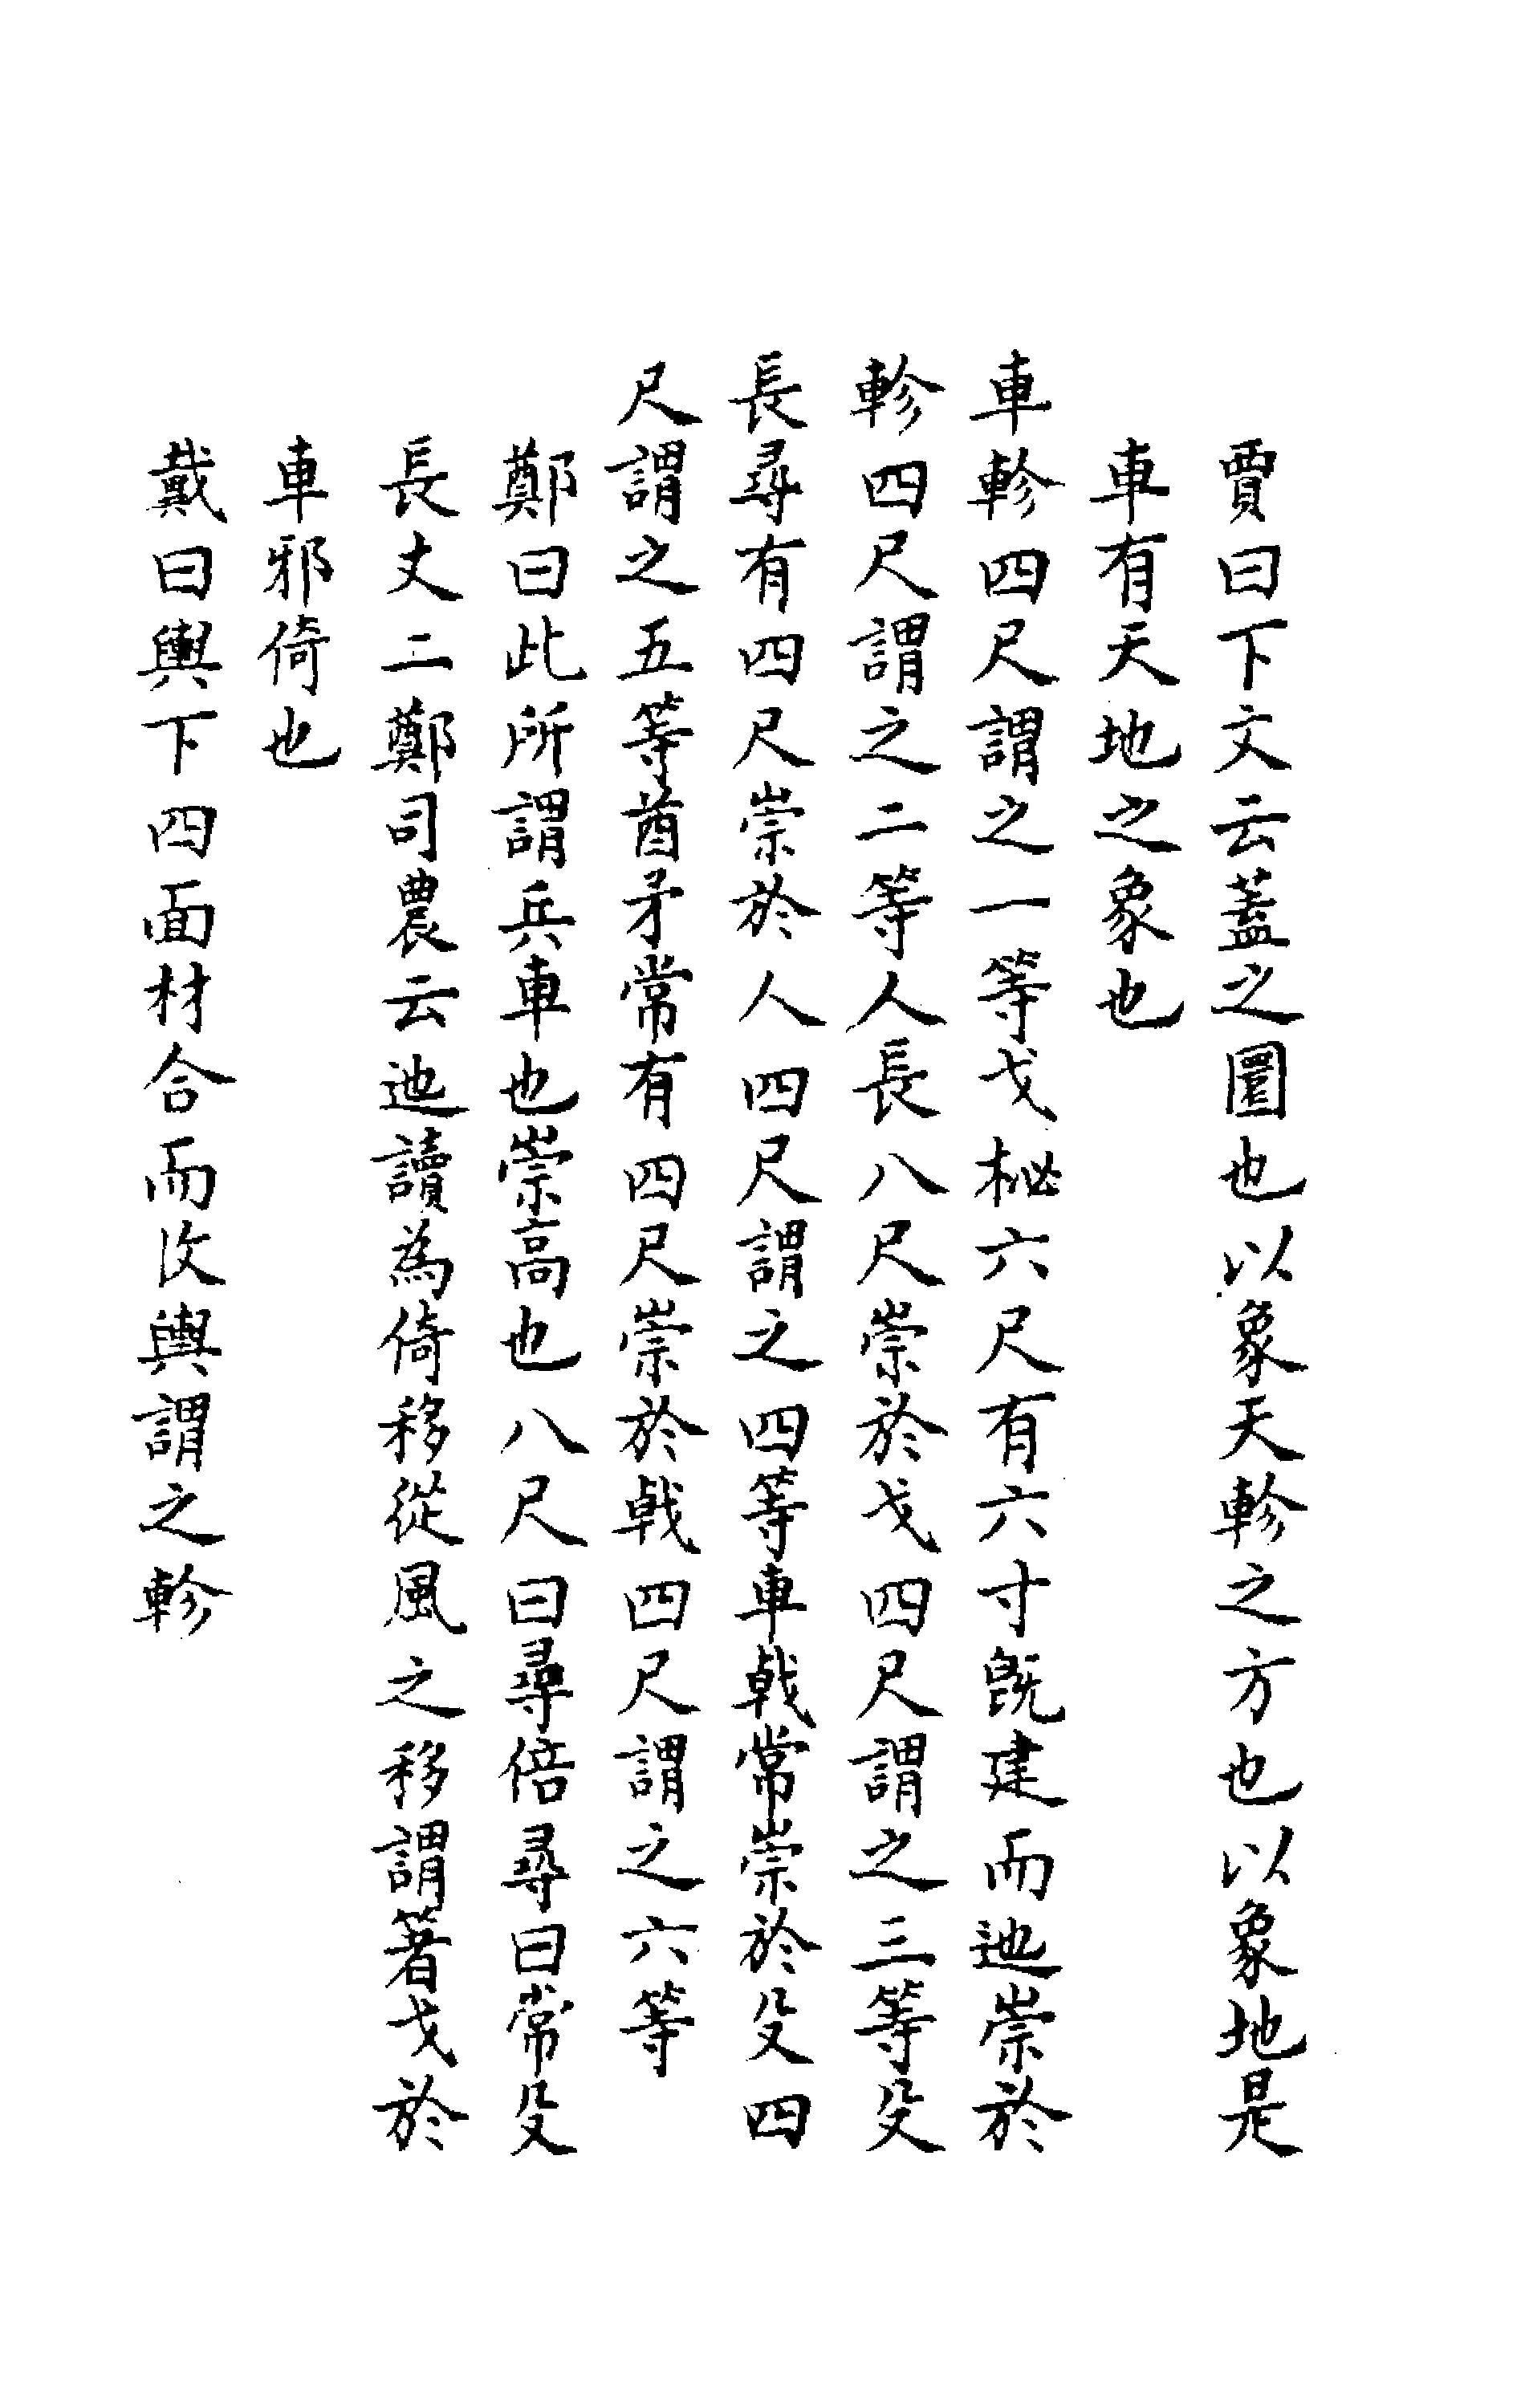 賈曰下文云蓋之圜也以象天軫之方也以象地是
車有天地之象也
車軫四尺謂之一等戈柲六尺有六寸旣建而迆崇於
軫四尺謂之二等人長八尺崇於戈四尺謂之三等殳
長尋有四尺崇於人四尺謂之四等車戟常崇於殳四
尺謂之五等酋矛常有四尺崇於戟四尺謂之六等
鄭曰此所謂兵車也崇高也八尺曰尋倍尋曰常殳
長丈二鄭司農云迆讀為倚移從風之移謂著戈於
車邪倚也
戴曰輿下四面材合而收輿謂之軫